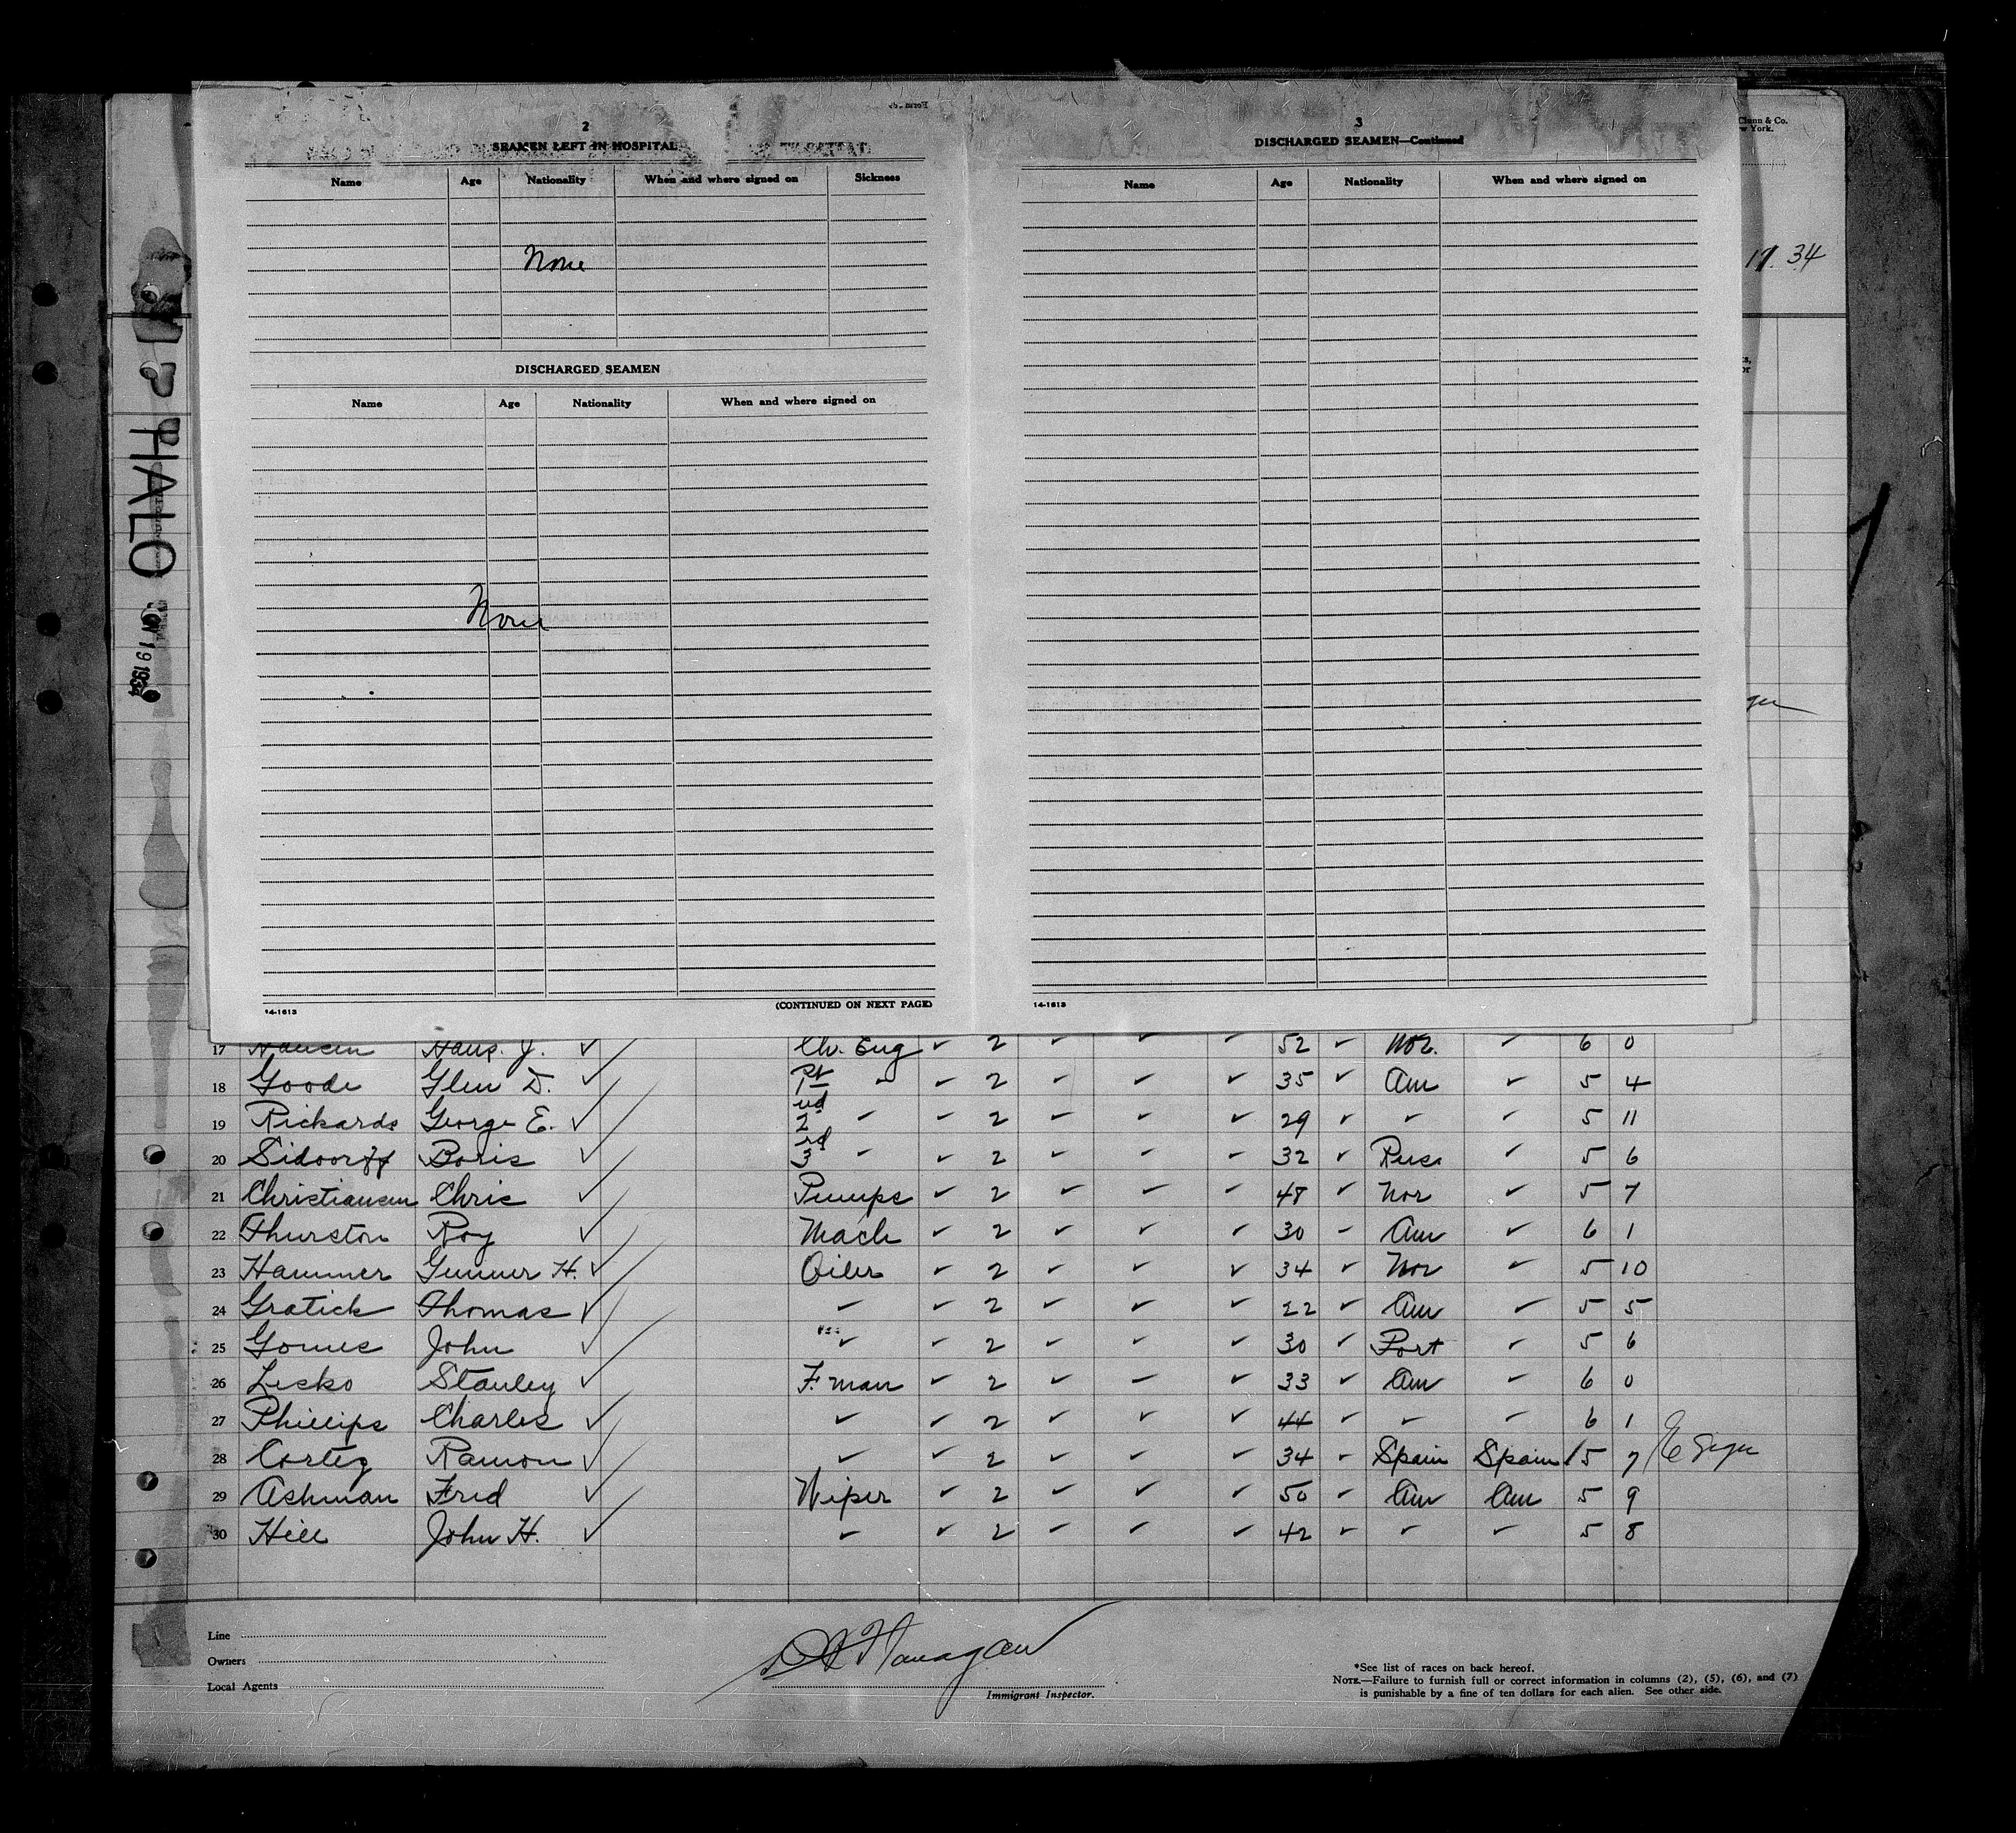 2
SEAMEN LEFT IN HOSPITAL
Name Age Nationality When and where signed on Sickness
None
DISCHARGED SEAMEN
Name Age Nationality When and where signed on
None
14-1613 (CONTINUED ON NEXT PAGE)
3
DISCHARGED SEAMEN—Continued
Name Age Nationality When and where signed on
14-1613
Clunn & Co.
w York.
17. 34
HALO
19 1934
17 Hansen Hans. J. ✓ Ch. Eng ✓ 2 ✓ ✓ ✓ 52 ✓ Nor. ✓ 6 0
18 Goode Glen D. ✓ 1st " ✓ 2 ✓ ✓ ✓ 35 ✓ Am ✓ 5 4
19 Rickards George E. ✓ 2nd ✓ ✓ 2 ✓ ✓ ✓ 29 ✓ ✓ ✓ 5 11
20 Sidoorff Boris ✓ 3rd ✓ ✓ 2 ✓ ✓ ✓ 32 ✓ Russ ✓ 5 6
21 Christiansen Chris ✓ Pumps ✓ 2 ✓ ✓ ✓ 48 ✓ Nor ✓ 5 7
22 Thurston Roy ✓ Mach ✓ 2 ✓ ✓ ✓ 30 ✓ Am ✓ 6 1
23 Hammer Gunner H. ✓ Oiler ✓ 2 ✓ ✓ ✓ 34 ✓ Nor ✓ 5 10
24 Gratick Thomas ✓ ✓ ✓ 2 ✓ ✓ ✓ 22 ✓ Am ✓ 5 5
25 Gomes John ✓ ✓ ✓ 2 ✓ ✓ ✓ 30 ✓ Port ✓ 5 6
26 Lesko Stanley ✓ F. man ✓ 2 ✓ ✓ ✓ 33 ✓ Am ✓ 6 0
27 Phillips Charles ✓ ✓ ✓ 2 ✓ ✓ ✓ 44 ✓ ✓ ✓ 6 1
28 Cortez Ramon ✓ ✓ ✓ 2 ✓ ✓ ✓ 34 ✓ Spain Spain 5 7
29 Ashman Fred ✓ Wiper ✓ 2 ✓ ✓ ✓ 50 ✓ Am Am 5 9
30 Hill John H. ✓ ✓ ✓ 2 ✓ ✓ ✓ 42 ✓ ✓ ✓ 5 8
Line
Owners
Local Agents
Flanagan
Immigrant Inspector.
*See list of races on back hereof.
NOTE.—Failure to furnish full or correct information in columns (2), (5), (6), and (7)
is punishable by a fine of ten dollars for each alien. See other side.